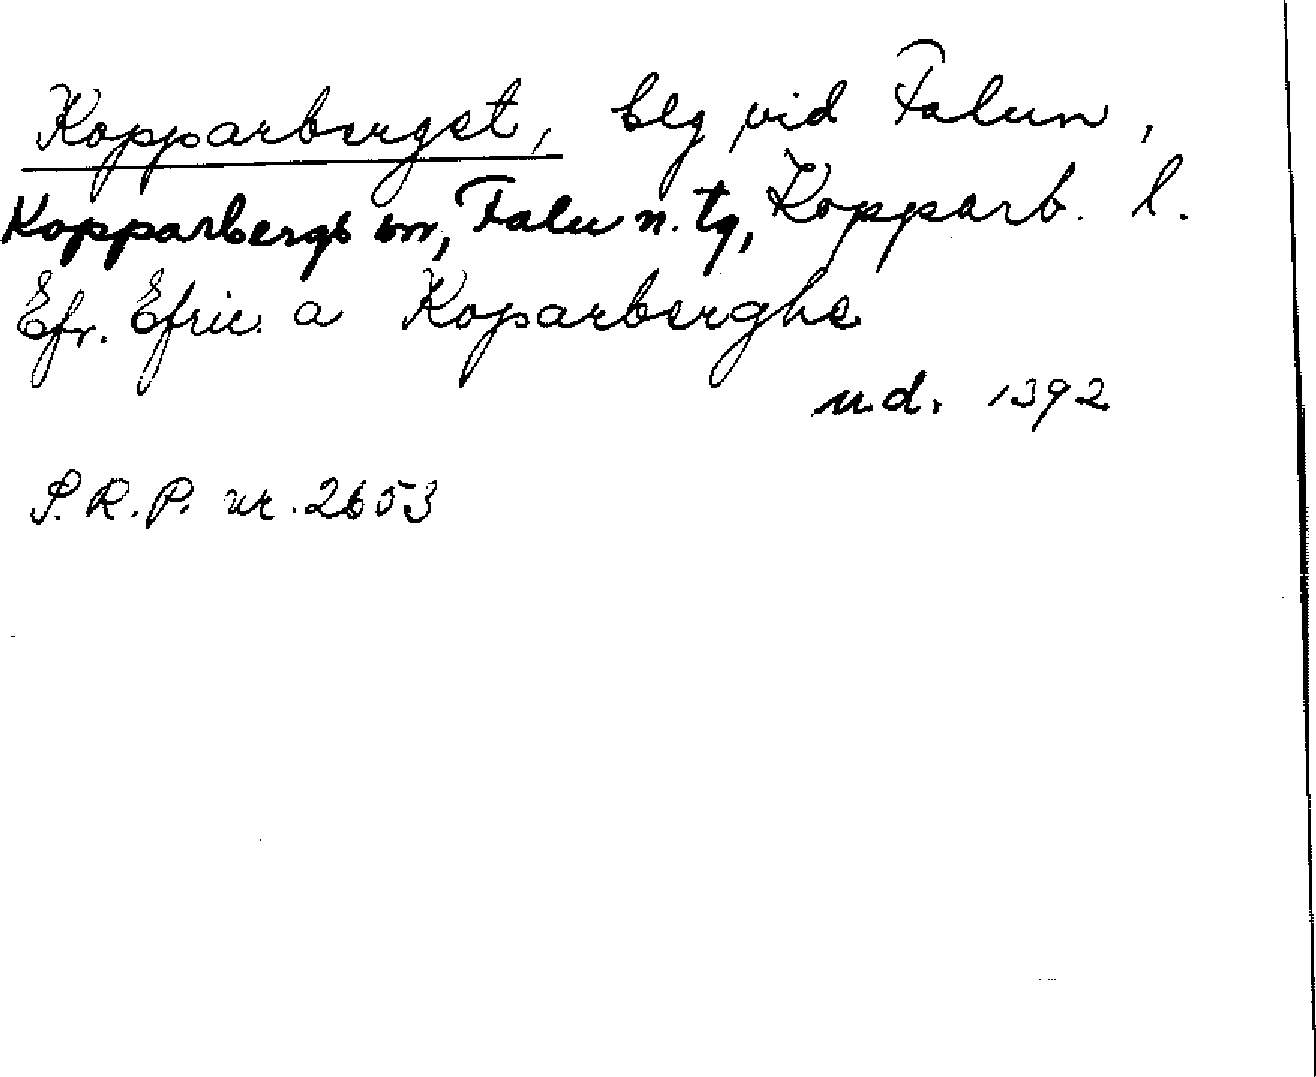 Kopparberget, blg vid Falun,
Kopparbergs sn, Falu n. tg, Kopparb. l.
Efr. Efric. a Koparberghe
u.d. 1392
S.R.P. nr. 2653